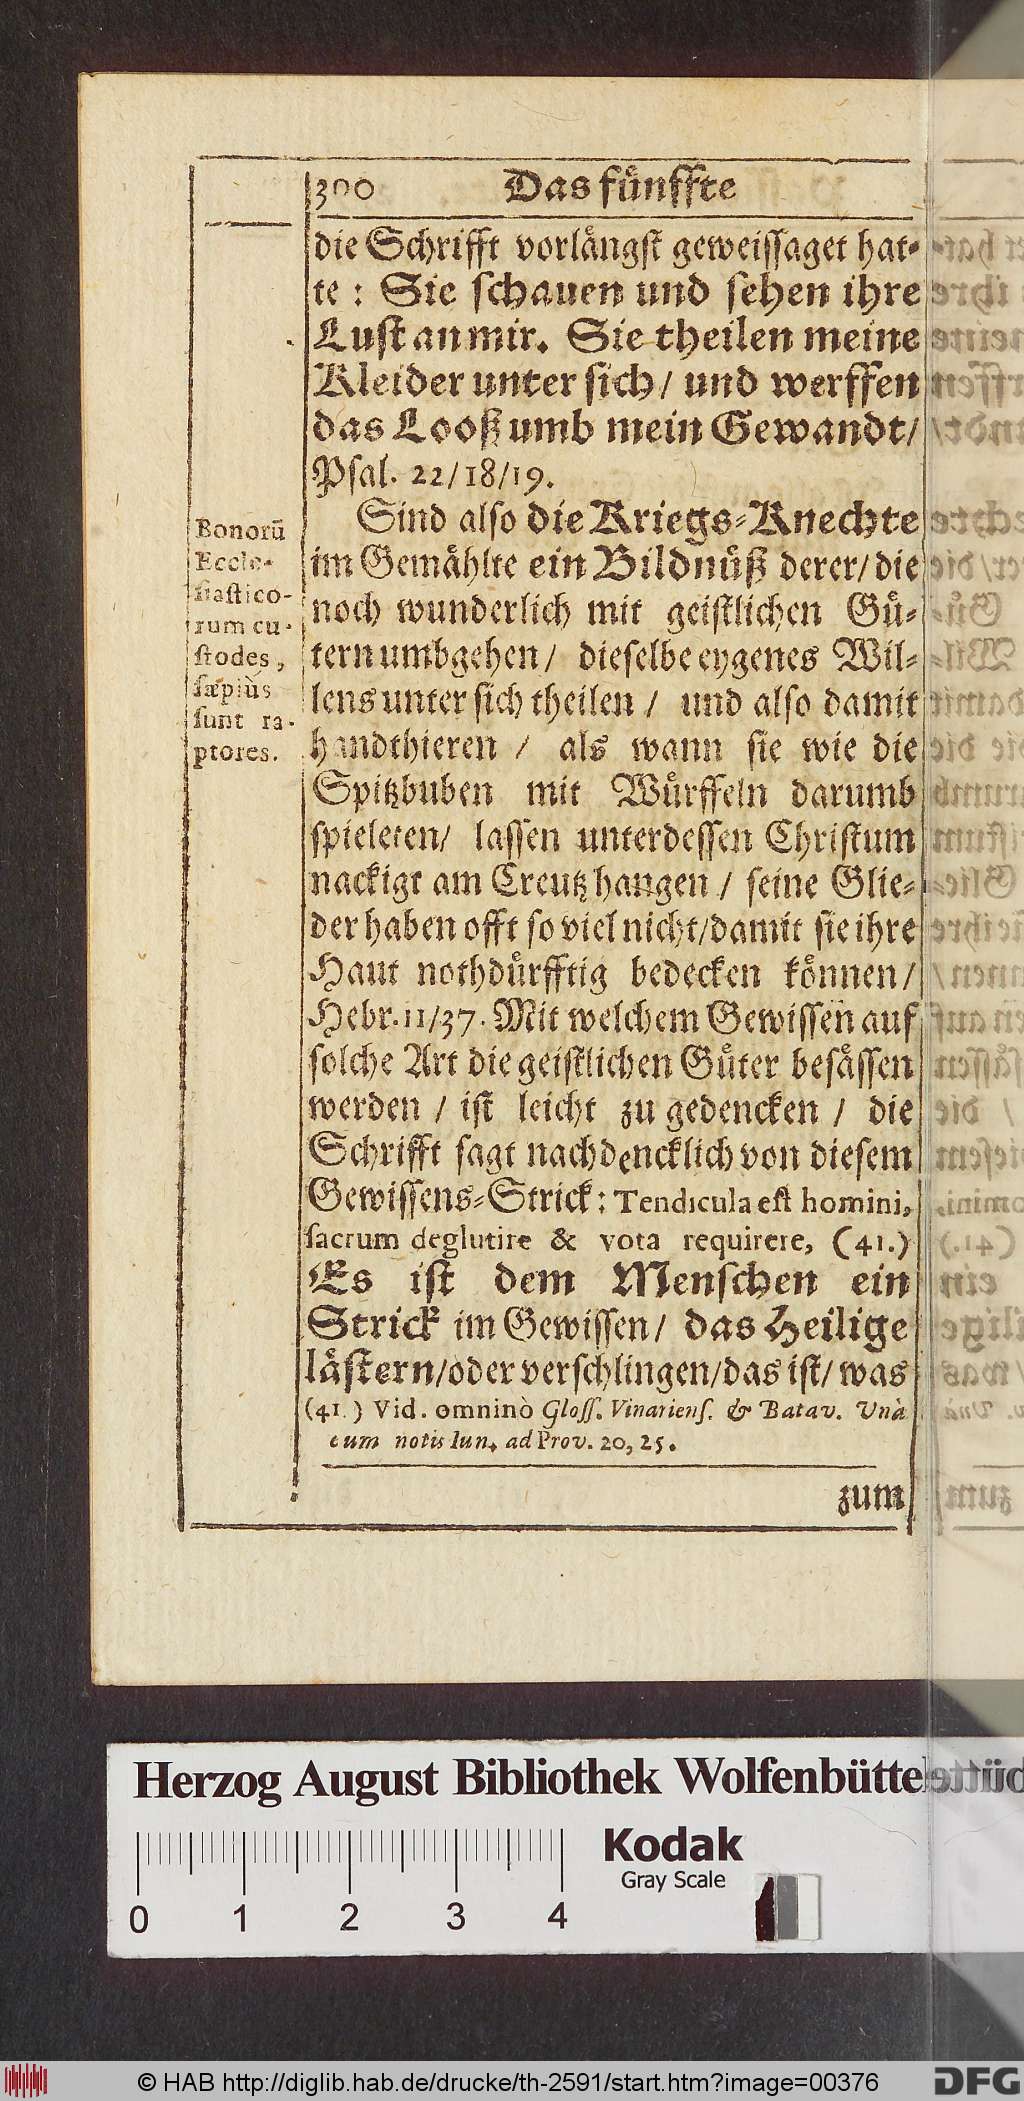 300 Das fůnffte
die Schrifft vorlångst geweissaget hat-
te : Sie schauen und sehen ihre
Lust an mir. Sie theilen meine
Kleider unter sich/ und werffen
das Looß umb mein Gewandt/
Psal. 22/18/19.
Sind also die Kriegs-Knechte
im Gemåhlte ein Bildnůß derer/ die
noch wunderlich mit geistlichen Gů-
tern umbgehen/ dieselbe eygenes Wil-
lens unter sich theilen / und also damit
handthieren / als wann sie wie die
Spitzbuben mit Wůrffeln darumb
spieleten/ lassen unterdessen Christum
nackigt am Creutz hangen / seine Glie-
der haben offt so viel nicht/damit sie ihre
Haut nothdůrfftig bedecken kőnnen/
Hebr. 11/37. Mit welchem Gewissen auf
solche Art die geistlichen Gůter besåssen
werden / ist leicht zu gedencken / die
Schrifft sagt nachdencklich von diesem
Gewissens-Strick: Tendicula est homini,
sacrum deglutire & vota requirere, (41.)
Es ist dem Menschen ein
Strick im Gewissen/ das Heilige
låstern/oder verschlingen/das ist/ was
Bonorũ
Eccle-
siastico-
rum cu-
stodes,
sæpiùs
sunt ra-
ptores.
(41.) Vid. omninò Gloss. Vinariens. & Batav. Vnà
cum notis Iun. ad Prov. 20, 25.
zum
Herzog August Bibliothek Wolfenbüttel
Kodak
Gray Scale
0 1 2 3 4
© HAB http://diglib.hab.de/drucke/th-2591/start.htm?image=00376
DFG